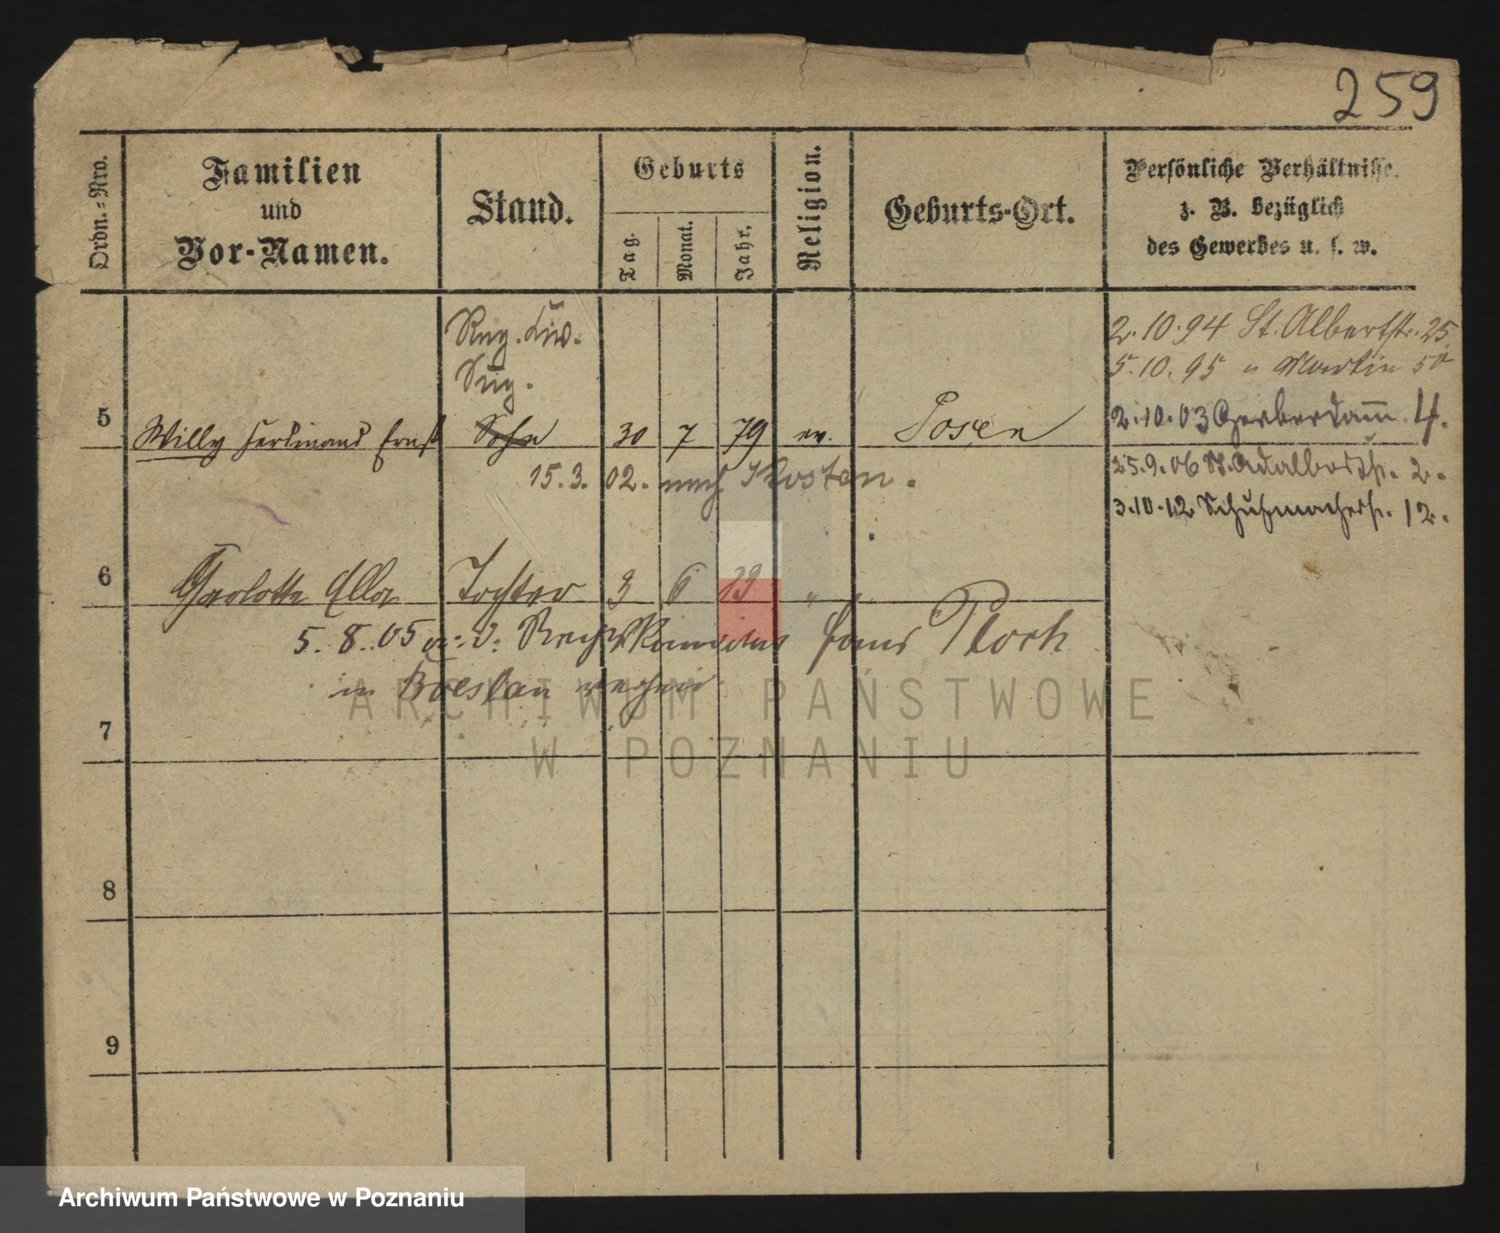 259
Ordn.=Nro.
Familien
und
Vor-Namen.
Stand.
Geburts
Tag.
Monat.
Jahr.
Religion.
Geburts-Ort.
Persönliche Verhältnisse
z. B. bezüglich
des Gewerbes u. s. w.
Reg. Civ.
Sup.
5
Willy Ferdinand Ernst
Sohn
30 7 79 ev. Posen
15.3.02. nach Kosten.
2.10.94 St. Albertstr. 25
5.10.95 " Martin 50
2.10.03 Gerberdamm 4.
25.9.06 St. Adalbertstr. 2.
3.10.12 Schuhmacherstr. 12.
6
Charlotte Ella Tochter 3 6 83 " "
5.8.05 a. d. Rechtskandidat Hans Plock
in Breslau verheir
7
8
9
ARCHIWUM PAŃSTWOWE
W POZNANIU
Archiwum Państwowe w Poznaniu